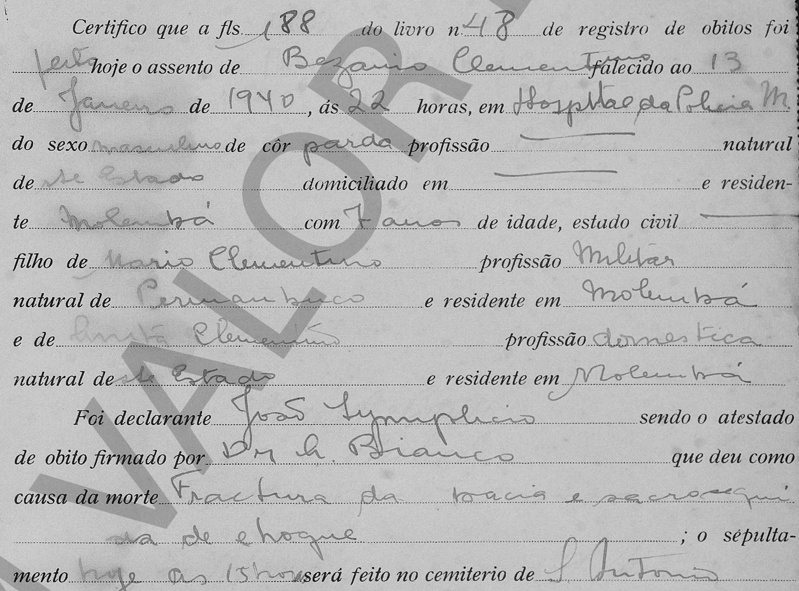 Certifico que a fls. 188 do livro nº 48 de registro de obitos foi
feito hoje o assento de Bezaino Clementino falecido ao 13
de Janeiro de 1940, ás 22 horas, em Hospital da Policia M.
do sexo masculino de côr parda profissão natural
de ste Estado domiciliado em e residen-
te Molembá com 7 anos de idade, estado civil
filho de Mario Clementino profissão Militar
natural de Pernambuco e residente em Molembá
e de Anita Clementino profissão domestica
natural de ste Estado e residente em Molembá
Foi declarante João Symplicio sendo o atestado
de obito firmado por Dr A. Bianco que deu como
causa da morte Fractura da bacia e sacro
de choque ; o sépulta-
mento hoje as 15 horas será feito no cemiterio de S Antonio
VALOR